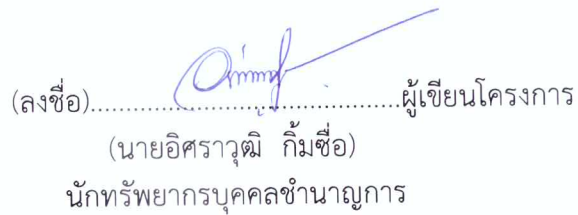 (ลงชื่อ)..........................................ผู้เขียนโครงการ
(นายอิศราวุฒิ กิ้มซื่อ)
นักทรัพยากรบุคคลชำนาญการ